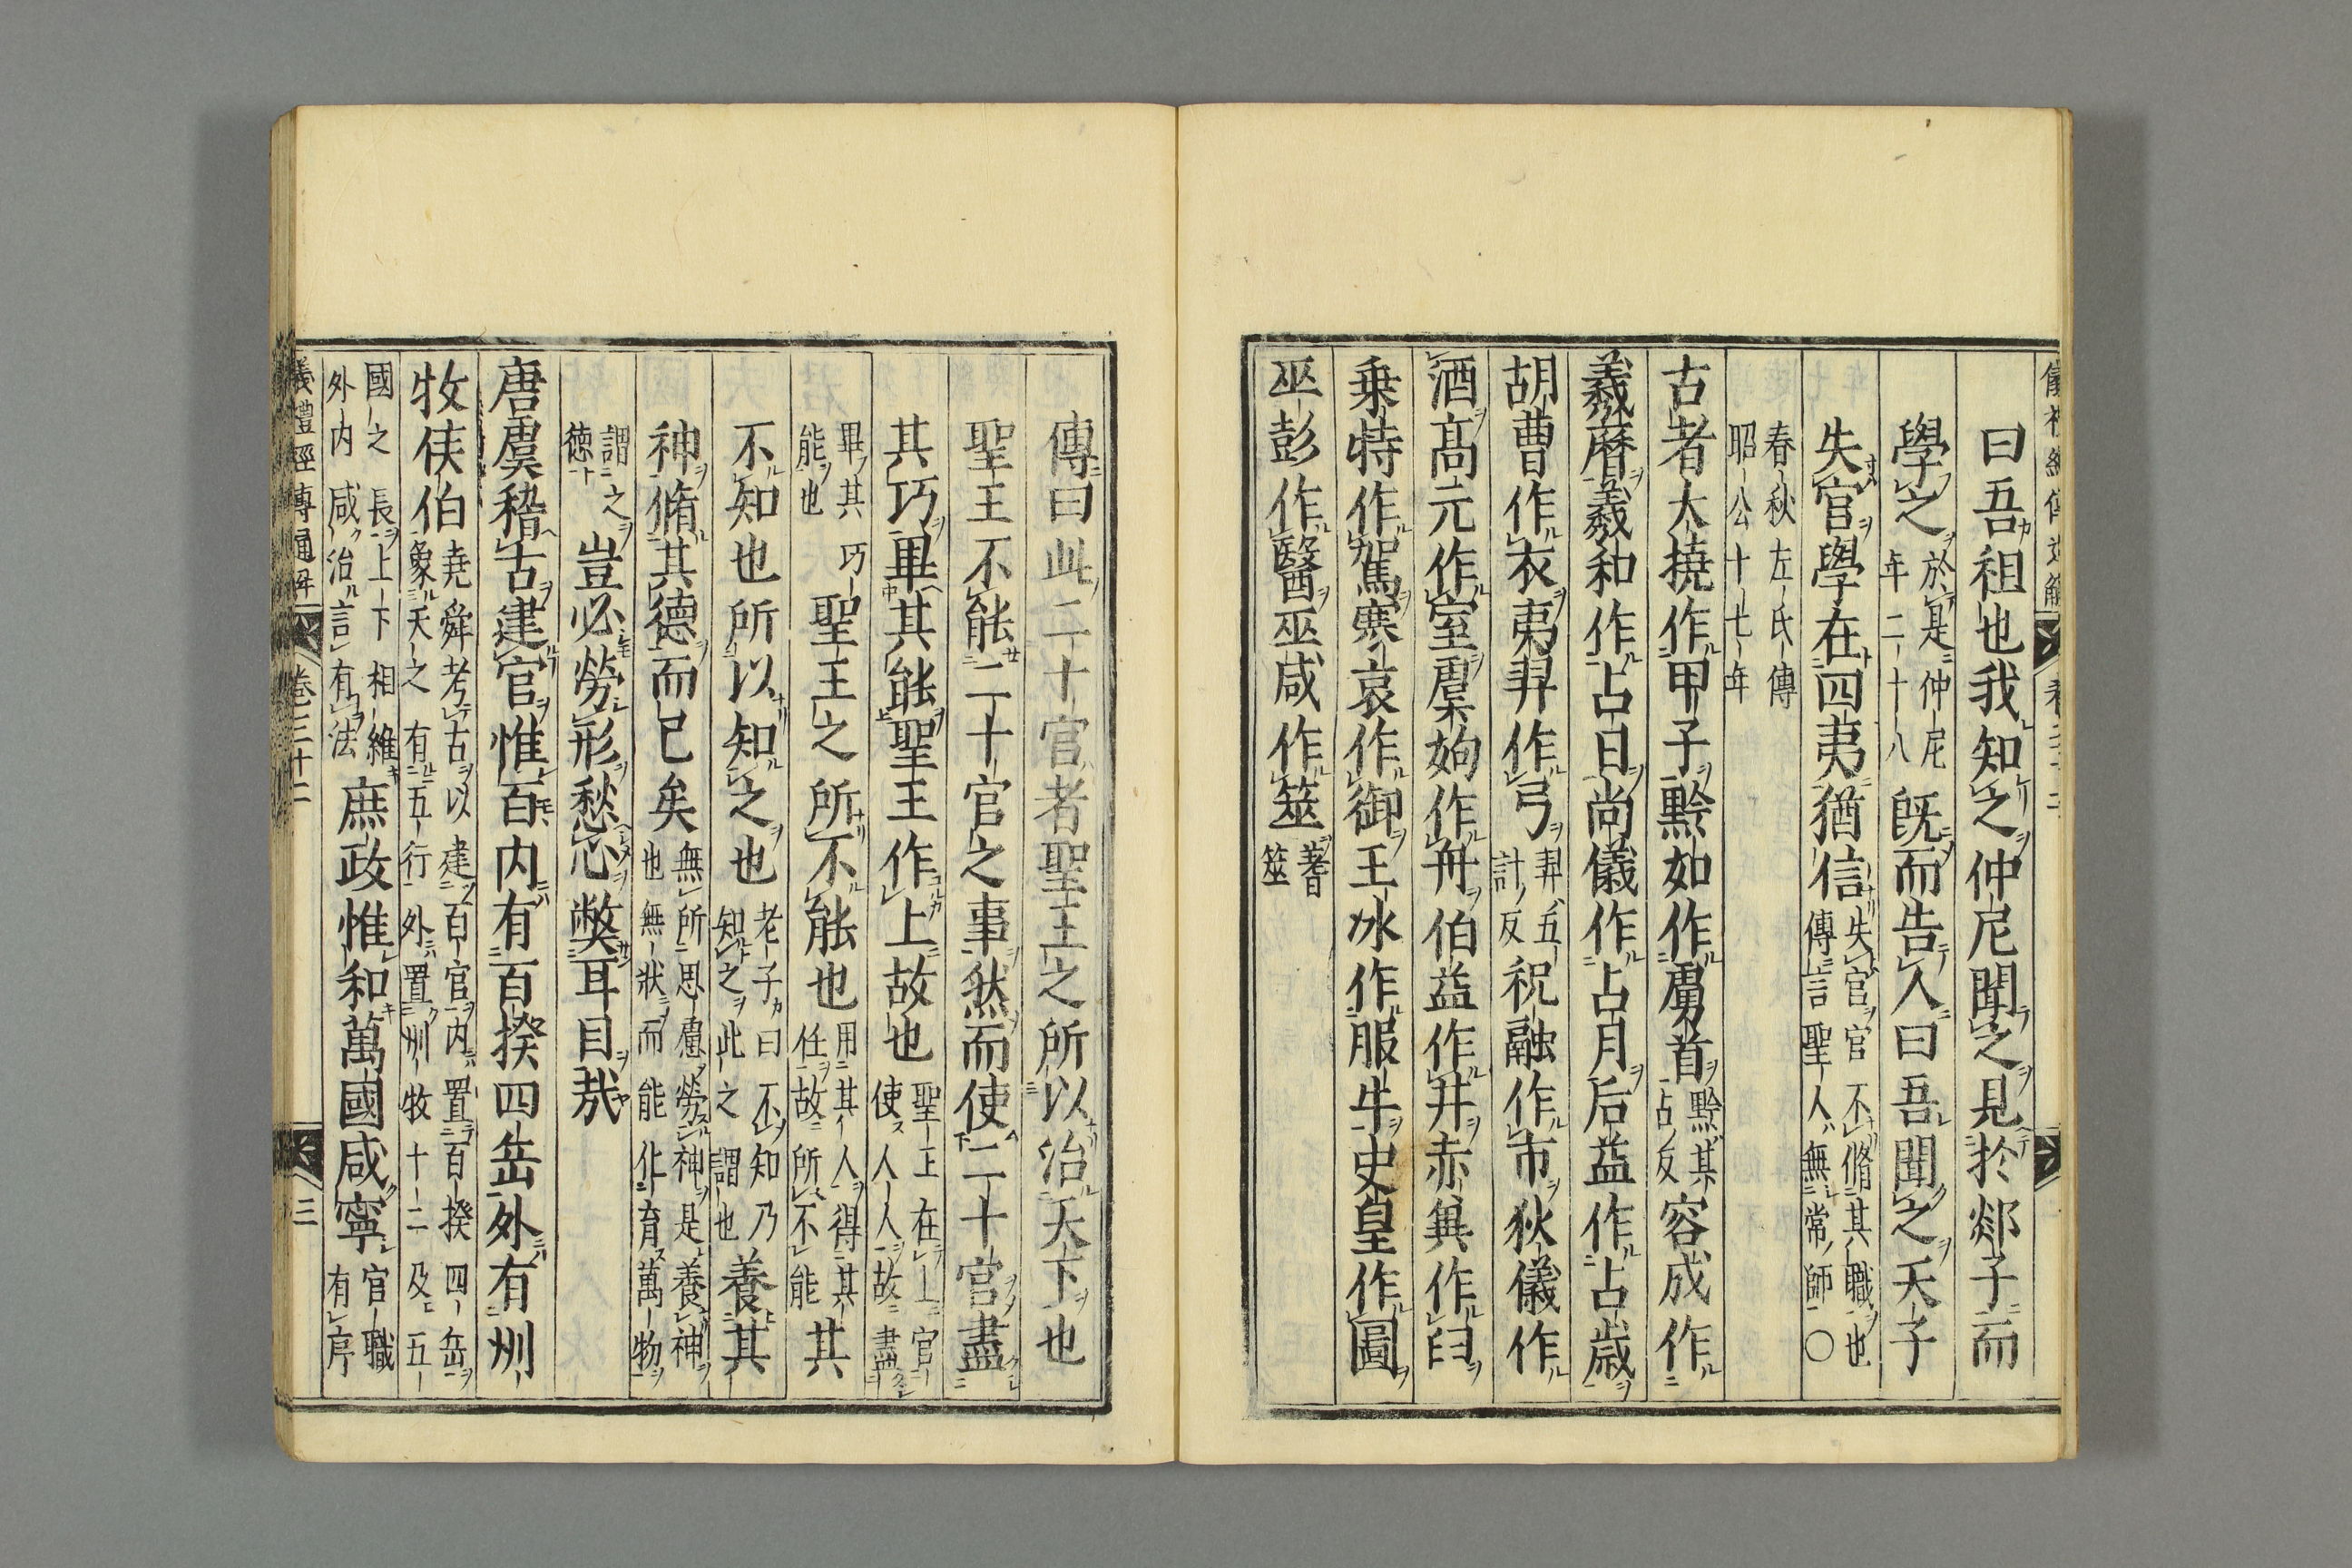 曰吾祖也我知之仲尼聞之見於郯子而
學之於是仲尼年二十八既而告人曰吾聞之天子
失官學在四夷猶信失官官不脩其職也傳言聖人無常師〇
春秋左氏傳昭公十七年
古者大撓作甲子黔如作虜首黔其占反容成作
羲曆羲和作占日尚儀作占月后益作占歲
胡曹作衣夷羿作弓羿五計反祝融作市狄儀作
酒高元作室虞姁作舟伯益作井赤冀作臼
乗特作駕寒哀作御王冰作服牛史皇作圖
巫彭作醫巫咸作筮蓍筮
傳曰此二十官者聖王之所以治天下也
聖王不能二十官之事然而使二十官盡
其巧畢其能聖王作上故也聖王在上官使人人故盡
畢其巧能也聖王之所不能也用其人得其任故所不能其
不知也所以知之也老子曰不知乃知之此之謂也養其
神脩其德而已矣無所思慮勞神是養神也無狀而能化育萬物
謂之德豈必勞形愁心獘耳目㢤
唐虞稽古建官惟百内有百揆四岳外有州
牧侯伯堯舜考古以建百官内置百揆四岳象天之有五行外置州牧十二及五
國之長上下相維外内咸治言有法庶政惟和萬國咸寧官職有序
儀禮經傳通解 卷三十二 三